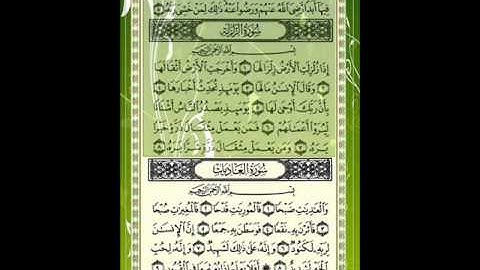 فِيهَا أَبَدًا رَّضِيَ اللَّهُ عَنْهُمْ وَرَضُوا عَنْهُ ذَٰلِكَ لِمَنْ خَشِيَ رَبَّهُ ۝٨
سُورَةُ الزَّلْزَلَةِ
بِسْمِ اللَّهِ الرَّحْمَٰنِ الرَّحِيمِ
إِذَا زُلْزِلَتِ الْأَرْضُ زِلْزَالَهَا ۝١ وَأَخْرَجَتِ الْأَرْضُ أَثْقَالَهَا
۝٢ وَقَالَ الْإِنسَانُ مَا لَهَا ۝٣ يَوْمَئِذٍ تُحَدِّثُ أَخْبَارَهَا ۝٤
بِأَنَّ رَبَّكَ أَوْحَىٰ لَهَا ۝٥ يَوْمَئِذٍ يَصْدُرُ النَّاسُ أَشْتَاتًا
لِّيُرَوْا أَعْمَالَهُمْ ۝٦ فَمَن يَعْمَلْ مِثْقَالَ ذَرَّةٍ خَيْرًا
يَرَهُ ۝٧ وَمَن يَعْمَلْ مِثْقَالَ ذَرَّةٍ شَرًّا يَرَهُ ۝٨
سُورَةُ الْعَادِيَاتِ
بِسْمِ اللَّهِ الرَّحْمَٰنِ الرَّحِيمِ
وَالْعَادِيَاتِ ضَبْحًا ۝١ فَالْمُورِيَاتِ قَدْحًا ۝٢ فَالْمُغِيرَاتِ صُبْحًا
۝٣ فَأَثَرْنَ بِهِ نَقْعًا ۝٤ فَوَسَطْنَ بِهِ جَمْعًا ۝٥ إِنَّ الْإِنسَانَ
لِرَبِّهِ لَكَنُودٌ ۝٦ وَإِنَّهُ عَلَىٰ ذَٰلِكَ لَشَهِيدٌ ۝٧ وَإِنَّهُ لِحُبِّ
الْخَيْرِ لَشَدِيدٌ ۝٨ أَفَلَا يَعْلَمُ إِذَا بُعْثِرَ مَا فِي الْقُبُورِ ۝٩